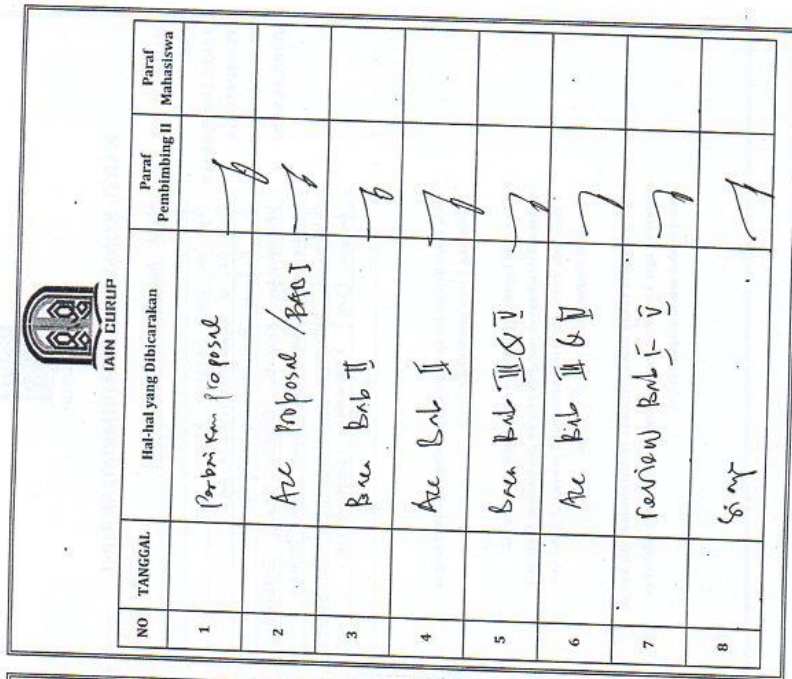 IAIN CURUP
NO TANGGAL Hal-hal yang Dibicarakan Paraf Pembimbing II Paraf Mahasiswa
1 Perbaikan Proposal
2 Acc Proposal / BAB I
3 Baca Bab II
4 Acc Bab II
5 Baca Bab III & V
6 Acc Bab III & IV
7 review Bab I - V
8